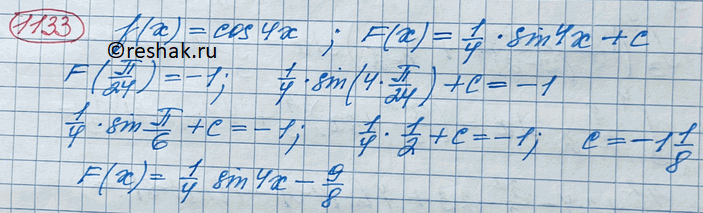 1133 f(x) = cos 4x ; F(x) = 1/4 · sin 4x + c
©reshak.ru
F(π/24) = -1; 1/4 · sin(4 · π/24) + c = -1
1/4 · sin π/6 + c = -1; 1/4 · 1/2 + c = -1; c = -1 1/8
F(x) = 1/4 sin 4x - 9/8